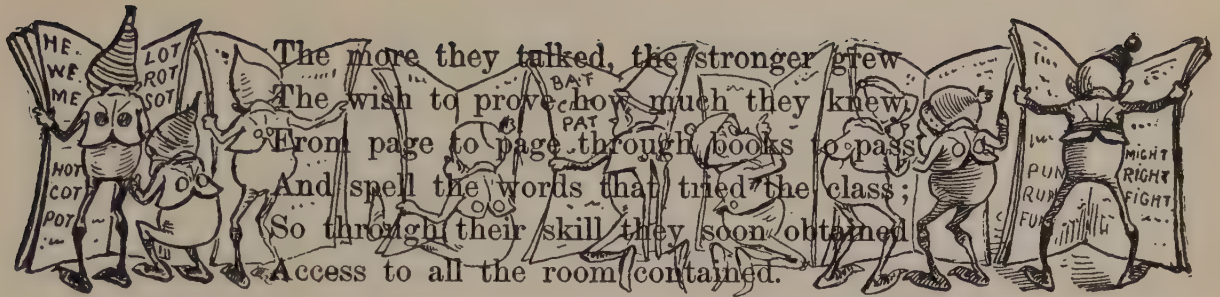 HE.
WE.
ME
HOT
COT
POT
LOT
ROT
SOT
The more they talked, the stronger grew
The wish to prove how much they knew,
From page to page through books to pass
And spell the words that tried the class;
So through their skill they soon obtained
Access to all the room contained.
BAT
PAT
PUN
RUN
MIGHT
RIGHT
FIGHT